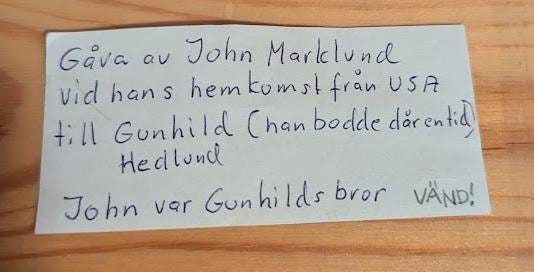 Gåva av John Marklund
vid hans hemkomst från USA
till Gunhild (han bodde där en tid)
Hedlund
John var Gunhilds bror VÄND!